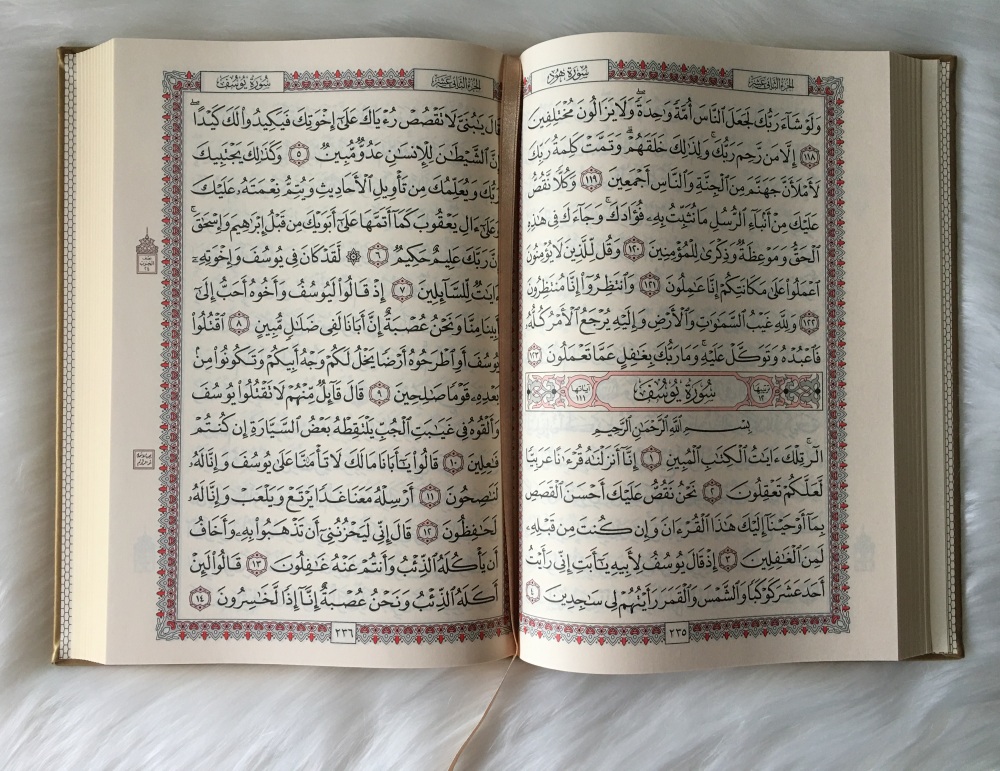 الجزء الثاني عشر
سورة هود
وَلَوْ شَآءَ رَبُّكَ لَجَعَلَ ٱلنَّاسَ أُمَّةً وَٰحِدَةً ۖ وَلَا يَزَالُونَ مُخْتَلِفِينَ
١١٨ إِلَّا مَن رَّحِمَ رَبُّكَ ۚ وَلِذَٰلِكَ خَلَقَهُمْ ۗ وَتَمَّتْ كَلِمَةُ رَبِّكَ
لَأَمْلَأَنَّ جَهَنَّمَ مِنَ ٱلْجِنَّةِ وَٱلنَّاسِ أَجْمَعِينَ ١١٩ وَكُلًّا نَّقُصُّ
عَلَيْكَ مِنْ أَنۢبَآءِ ٱلرُّسُلِ مَا نُثَبِّتُ بِهِۦ فُؤَادَكَ ۚ وَجَآءَكَ فِى هَٰذِهِ
ٱلْحَقُّ وَمَوْعِظَةٌ وَذِكْرَىٰ لِلْمُؤْمِنِينَ ١٢٠ وَقُل لِّلَّذِينَ لَا يُؤْمِنُونَ
ٱعْمَلُوا۟ عَلَىٰ مَكَانَتِكُمْ إِنَّا عَٰمِلُونَ ١٢١ وَٱنتَظِرُوٓا۟ إِنَّا مُنتَظِرُونَ
١٢٢ وَلِلَّهِ غَيْبُ ٱلسَّمَٰوَٰتِ وَٱلْأَرْضِ وَإِلَيْهِ يُرْجَعُ ٱلْأَمْرُ كُلُّهُۥ
فَٱعْبُدْهُ وَتَوَكَّلْ عَلَيْهِ ۚ وَمَا رَبُّكَ بِغَٰفِلٍ عَمَّا تَعْمَلُونَ ١٢٣
ترتيبها ١٢ سورة يوسف آياتها ١١١
بِسْمِ ٱللَّهِ ٱلرَّحْمَٰنِ ٱلرَّحِيمِ
الٓر ۚ تِلْكَ ءَايَٰتُ ٱلْكِتَٰبِ ٱلْمُبِينِ ١ إِنَّآ أَنزَلْنَٰهُ قُرْءَٰنًا عَرَبِيًّا
لَّعَلَّكُمْ تَعْقِلُونَ ٢ نَحْنُ نَقُصُّ عَلَيْكَ أَحْسَنَ ٱلْقَصَصِ
بِمَآ أَوْحَيْنَآ إِلَيْكَ هَٰذَا ٱلْقُرْءَانَ وَإِن كُنتَ مِن قَبْلِهِۦ
لَمِنَ ٱلْغَٰفِلِينَ ٣ إِذْ قَالَ يُوسُفُ لِأَبِيهِ يَٰٓأَبَتِ إِنِّى رَأَيْتُ
أَحَدَ عَشَرَ كَوْكَبًا وَٱلشَّمْسَ وَٱلْقَمَرَ رَأَيْتُهُمْ لِى سَٰجِدِينَ ٤
٢٣٥
الجزء الثاني عشر
سورة يوسف
قَالَ يَٰبُنَىَّ لَا تَقْصُصْ رُءْيَاكَ عَلَىٰٓ إِخْوَتِكَ فَيَكِيدُوا۟ لَكَ كَيْدًا ۖ
إِنَّ ٱلشَّيْطَٰنَ لِلْإِنسَٰنِ عَدُوٌّ مُّبِينٌ ٥ وَكَذَٰلِكَ يَجْتَبِيكَ
رَبُّكَ وَيُعَلِّمُكَ مِن تَأْوِيلِ ٱلْأَحَادِيثِ وَيُتِمُّ نِعْمَتَهُۥ عَلَيْكَ
وَعَلَىٰٓ ءَالِ يَعْقُوبَ كَمَآ أَتَمَّهَا عَلَىٰٓ أَبَوَيْكَ مِن قَبْلُ إِبْرَٰهِيمَ وَإِسْحَٰقَ ۚ
إِنَّ رَبَّكَ عَلِيمٌ حَكِيمٌ ٦ ۞ لَّقَدْ كَانَ فِى يُوسُفَ وَإِخْوَتِهِۦٓ
ءَايَٰتٌ لِّلسَّآئِلِينَ ٧ إِذْ قَالُوا۟ لَيُوسُفُ وَأَخُوهُ أَحَبُّ إِلَىٰٓ
أَبِينَا مِنَّا وَنَحْنُ عُصْبَةٌ إِنَّ أَبَانَا لَفِى ضَلَٰلٍ مُّبِينٍ ٨ ٱقْتُلُوا۟
يُوسُفَ أَوِ ٱطْرَحُوهُ أَرْضًا يَخْلُ لَكُمْ وَجْهُ أَبِيكُمْ وَتَكُونُوا۟ مِنۢ
بَعْدِهِۦ قَوْمًا صَٰلِحِينَ ٩ قَالَ قَآئِلٌ مِّنْهُمْ لَا تَقْتُلُوا۟ يُوسُفَ
وَأَلْقُوهُ فِى غَيَٰبَتِ ٱلْجُبِّ يَلْتَقِطْهُ بَعْضُ ٱلسَّيَّارَةِ إِن كُنتُمْ
فَٰعِلِينَ ١٠ قَالُوا۟ يَٰٓأَبَانَا مَا لَكَ لَا تَأْمَ۫نَّا عَلَىٰ يُوسُفَ وَإِنَّا لَهُۥ
لَنَٰصِحُونَ ١١ أَرْسِلْهُ مَعَنَا غَدًا يَرْتَعْ وَيَلْعَبْ وَإِنَّا لَهُۥ
لَحَٰفِظُونَ ١٢ قَالَ إِنِّى لَيَحْزُنُنِىٓ أَن تَذْهَبُوا۟ بِهِۦ وَأَخَافُ
أَن يَأْكُلَهُ ٱلذِّئْبُ وَأَنتُمْ عَنْهُ غَٰفِلُونَ ١٣ قَالُوا۟ لَئِنْ
أَكَلَهُ ٱلذِّئْبُ وَنَحْنُ عُصْبَةٌ إِنَّآ إِذًا لَّخَٰسِرُونَ ١٤
٢٣٦